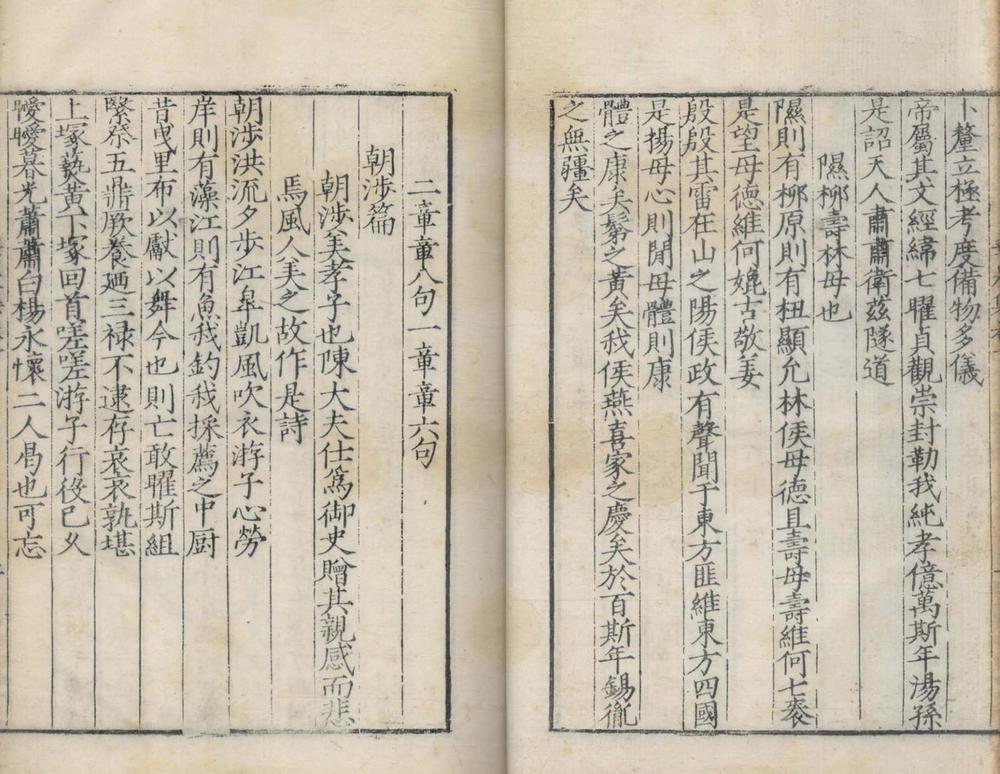 卜釐立極考度備物多儀
帝屬其文經緯七曜貞觀崇封勒我純孝億萬斯年湯孫
是詔天人肅肅衛茲隧道
隰柳壽林母也
隰則有柳原則有杻顯允林侯母德且壽母壽維何七袠
是望母德維何媲古敬姜
殷殷其雷在山之陽侯政有聲聞于東方匪維東方四國
是揚母心則閒母體則康
體之康矣髮之黃矣我侯燕喜家之慶矣於百斯年錫胤
之無疆矣
二章章八句一章章六句
朝涉篇
朝涉美孝子也陳大夫仕爲御史贈其親感而悲
焉風人美之故作是詩
朝涉洪流夕步江皐凱風吹衣游子心勞
岸則有藻江則有魚我釣我採薦之中厨
昔曳里布以獻以舞今也則亡敢曜斯組
緊祭五鼎厥養廼三禄不逮存哀哀孰堪
上塚蓺黃下塚回首嗟嗟游子行役已久
曖曖暮光蕭蕭白楊永懷二人曷也可忘